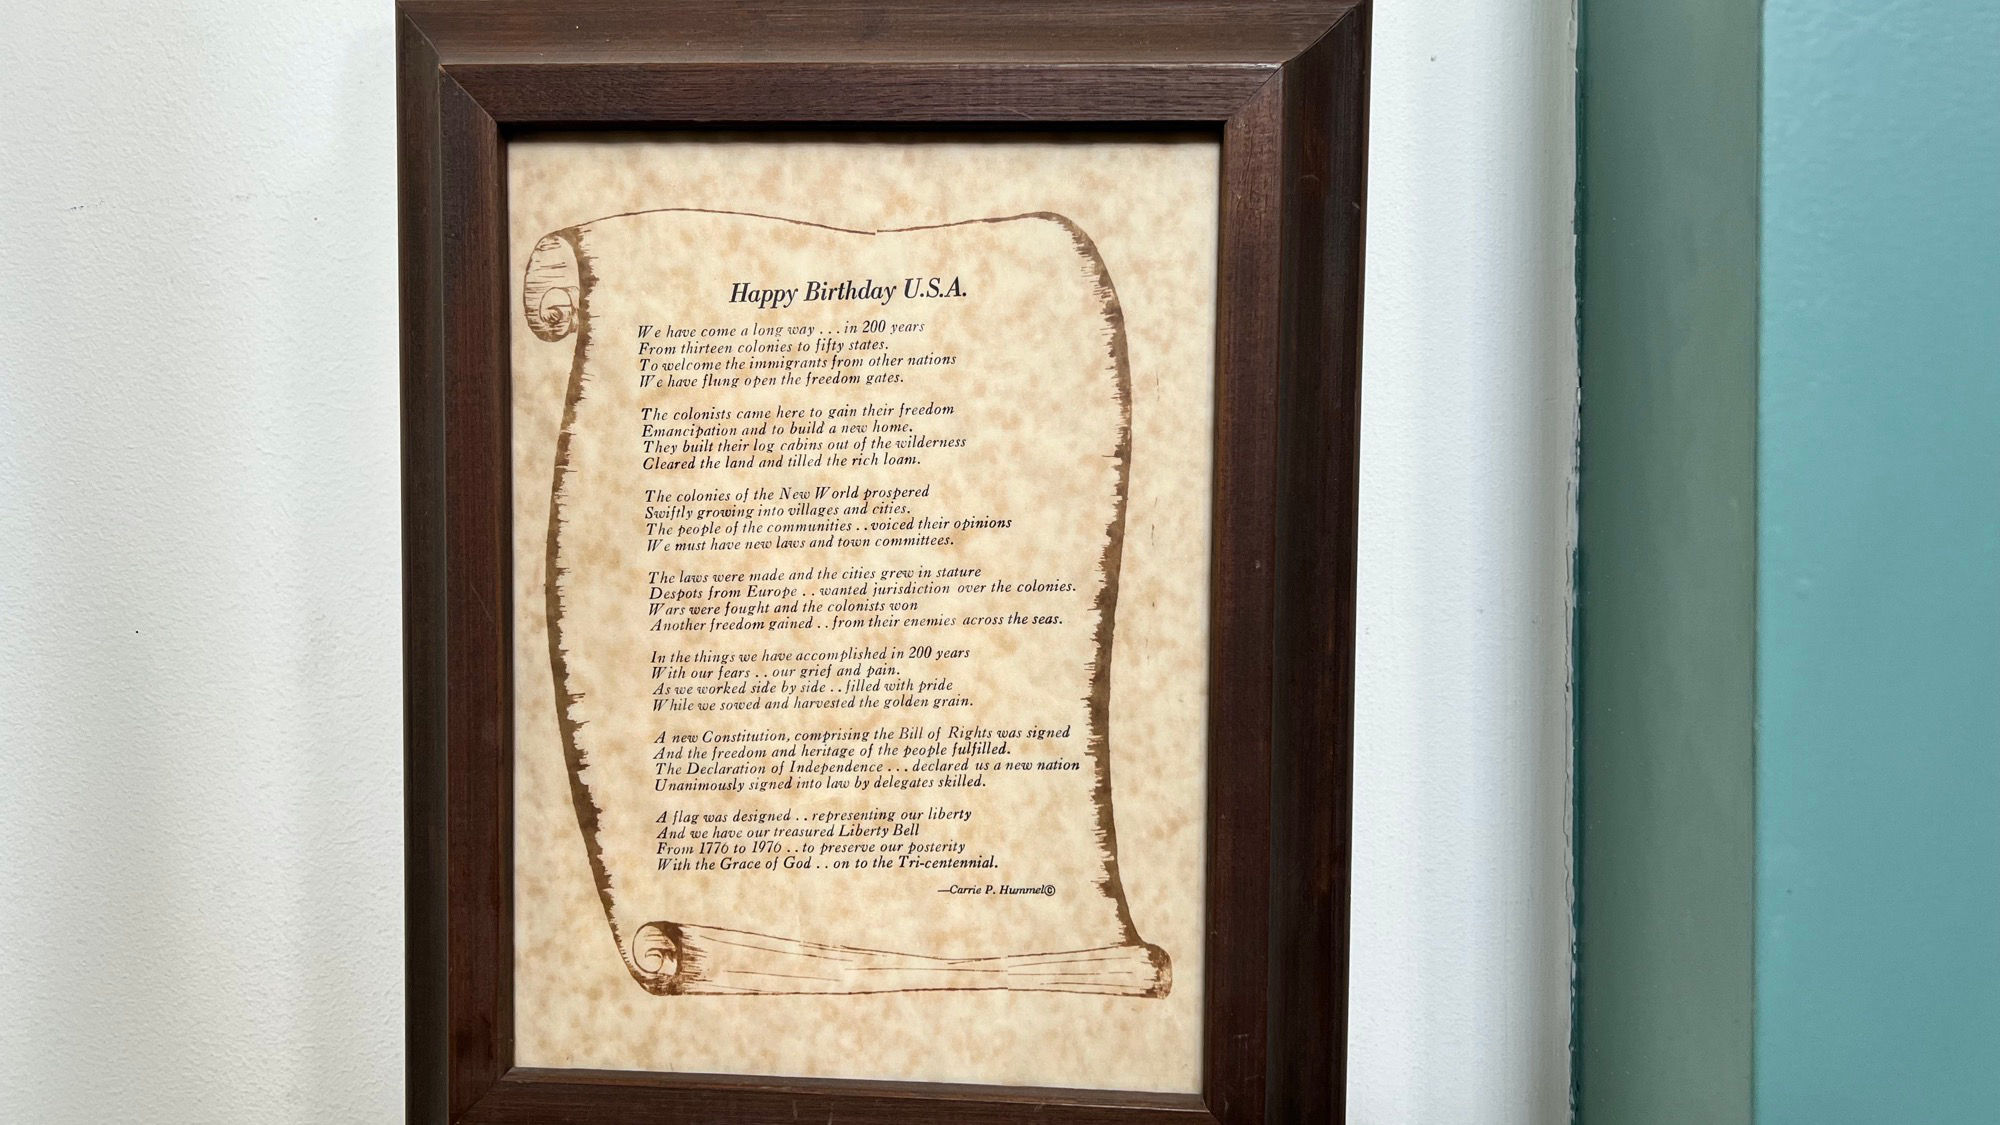 Happy Birthday U.S.A.
We have come a long way . . . in 200 years
From thirteen colonies to fifty states.
To welcome the immigrants from other nations
We have flung open the freedom gates.
The colonists came here to gain their freedom
Emancipation and to build a new home.
They built their log cabins out of the wilderness
Cleared the land and tilled the rich loam.
The colonies of the New World prospered
Swiftly growing into villages and cities.
The people of the communities . . voiced their opinions
We must have new laws and town committees.
The laws were made and the cities grew in stature
Despots from Europe . . wanted jurisdiction over the colonies.
Wars were fought and the colonists won
Another freedom gained . . from their enemies across the seas.
In the things we have accomplished in 200 years
With our fears . . our grief and pain.
As we worked side by side . . filled with pride
While we sowed and harvested the golden grain.
A new Constitution, comprising the Bill of Rights was signed
And the freedom and heritage of the people fulfilled.
The Declaration of Independence . . . declared us a new nation
Unanimously signed into law by delegates skilled.
A flag was designed . . representing our liberty
And we have our treasured Liberty Bell
From 1776 to 1976 . . to preserve our posterity
With the Grace of God . . on to the Tri-centennial.
—Carrie P. Hummel©